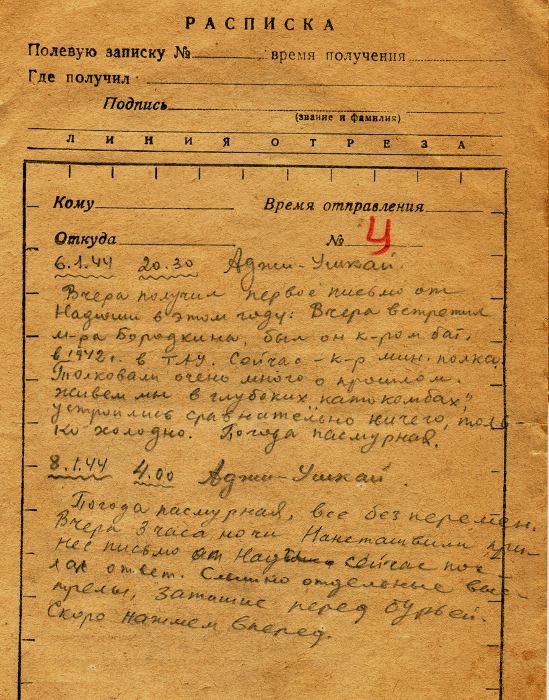 РАСПИСКА
Полевую записку № время получения
Где получил
Подпись
(звание и фамилия)
ЛИНИЯ ОТРЕЗА
Кому Время отправления
Откуда № 4
6.1.44 20.30 Аджи-Ушкай.
Вчера получил первое письмо от
Надюши в этом году: Вчера встретил
м-ра Бородкина, был он к-ром бат.
в 1942г. в ТАУ. Сейчас - к-р мин. полка.
Толковали очень много о прошлом.
Живем мы в глубоких катокомбах,
устроились сравнительно ничего, толь-
ко холодно. Погода пасмурная.
8.1.44 4.00 Аджи-Ушкай.
Погода пасмурная, все без перемен.
Вчера 3 часа ночи при-
нес письмо от сейчас пос-
лал ответ. Слышно отдельные выс-
трелы, затишье перед бурьей.
Скоро нажмем вперед.